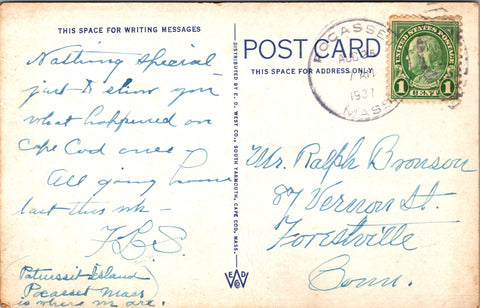 THIS SPACE FOR WRITING MESSAGES
Nothing special
just to show you
what happened on
Cape Cod once -
All going home
last this wk -
F.L.S.
Patuisset Island
Pocasset Mass
is where m are.
DISTRIBUTED BY E. D. WEST CO., SOUTH YARMOUTH, CAPE COD, MASS.
POST CARD
THIS SPACE FOR ADDRESS ONLY
POCASSET
AUG
7 AM
1937
MASS.
UNITED STATES POSTAGE
1 CENT 1
Mr. Ralph Bronson
87 Vernon St.
Forestville
Conn.
E D
W
Co